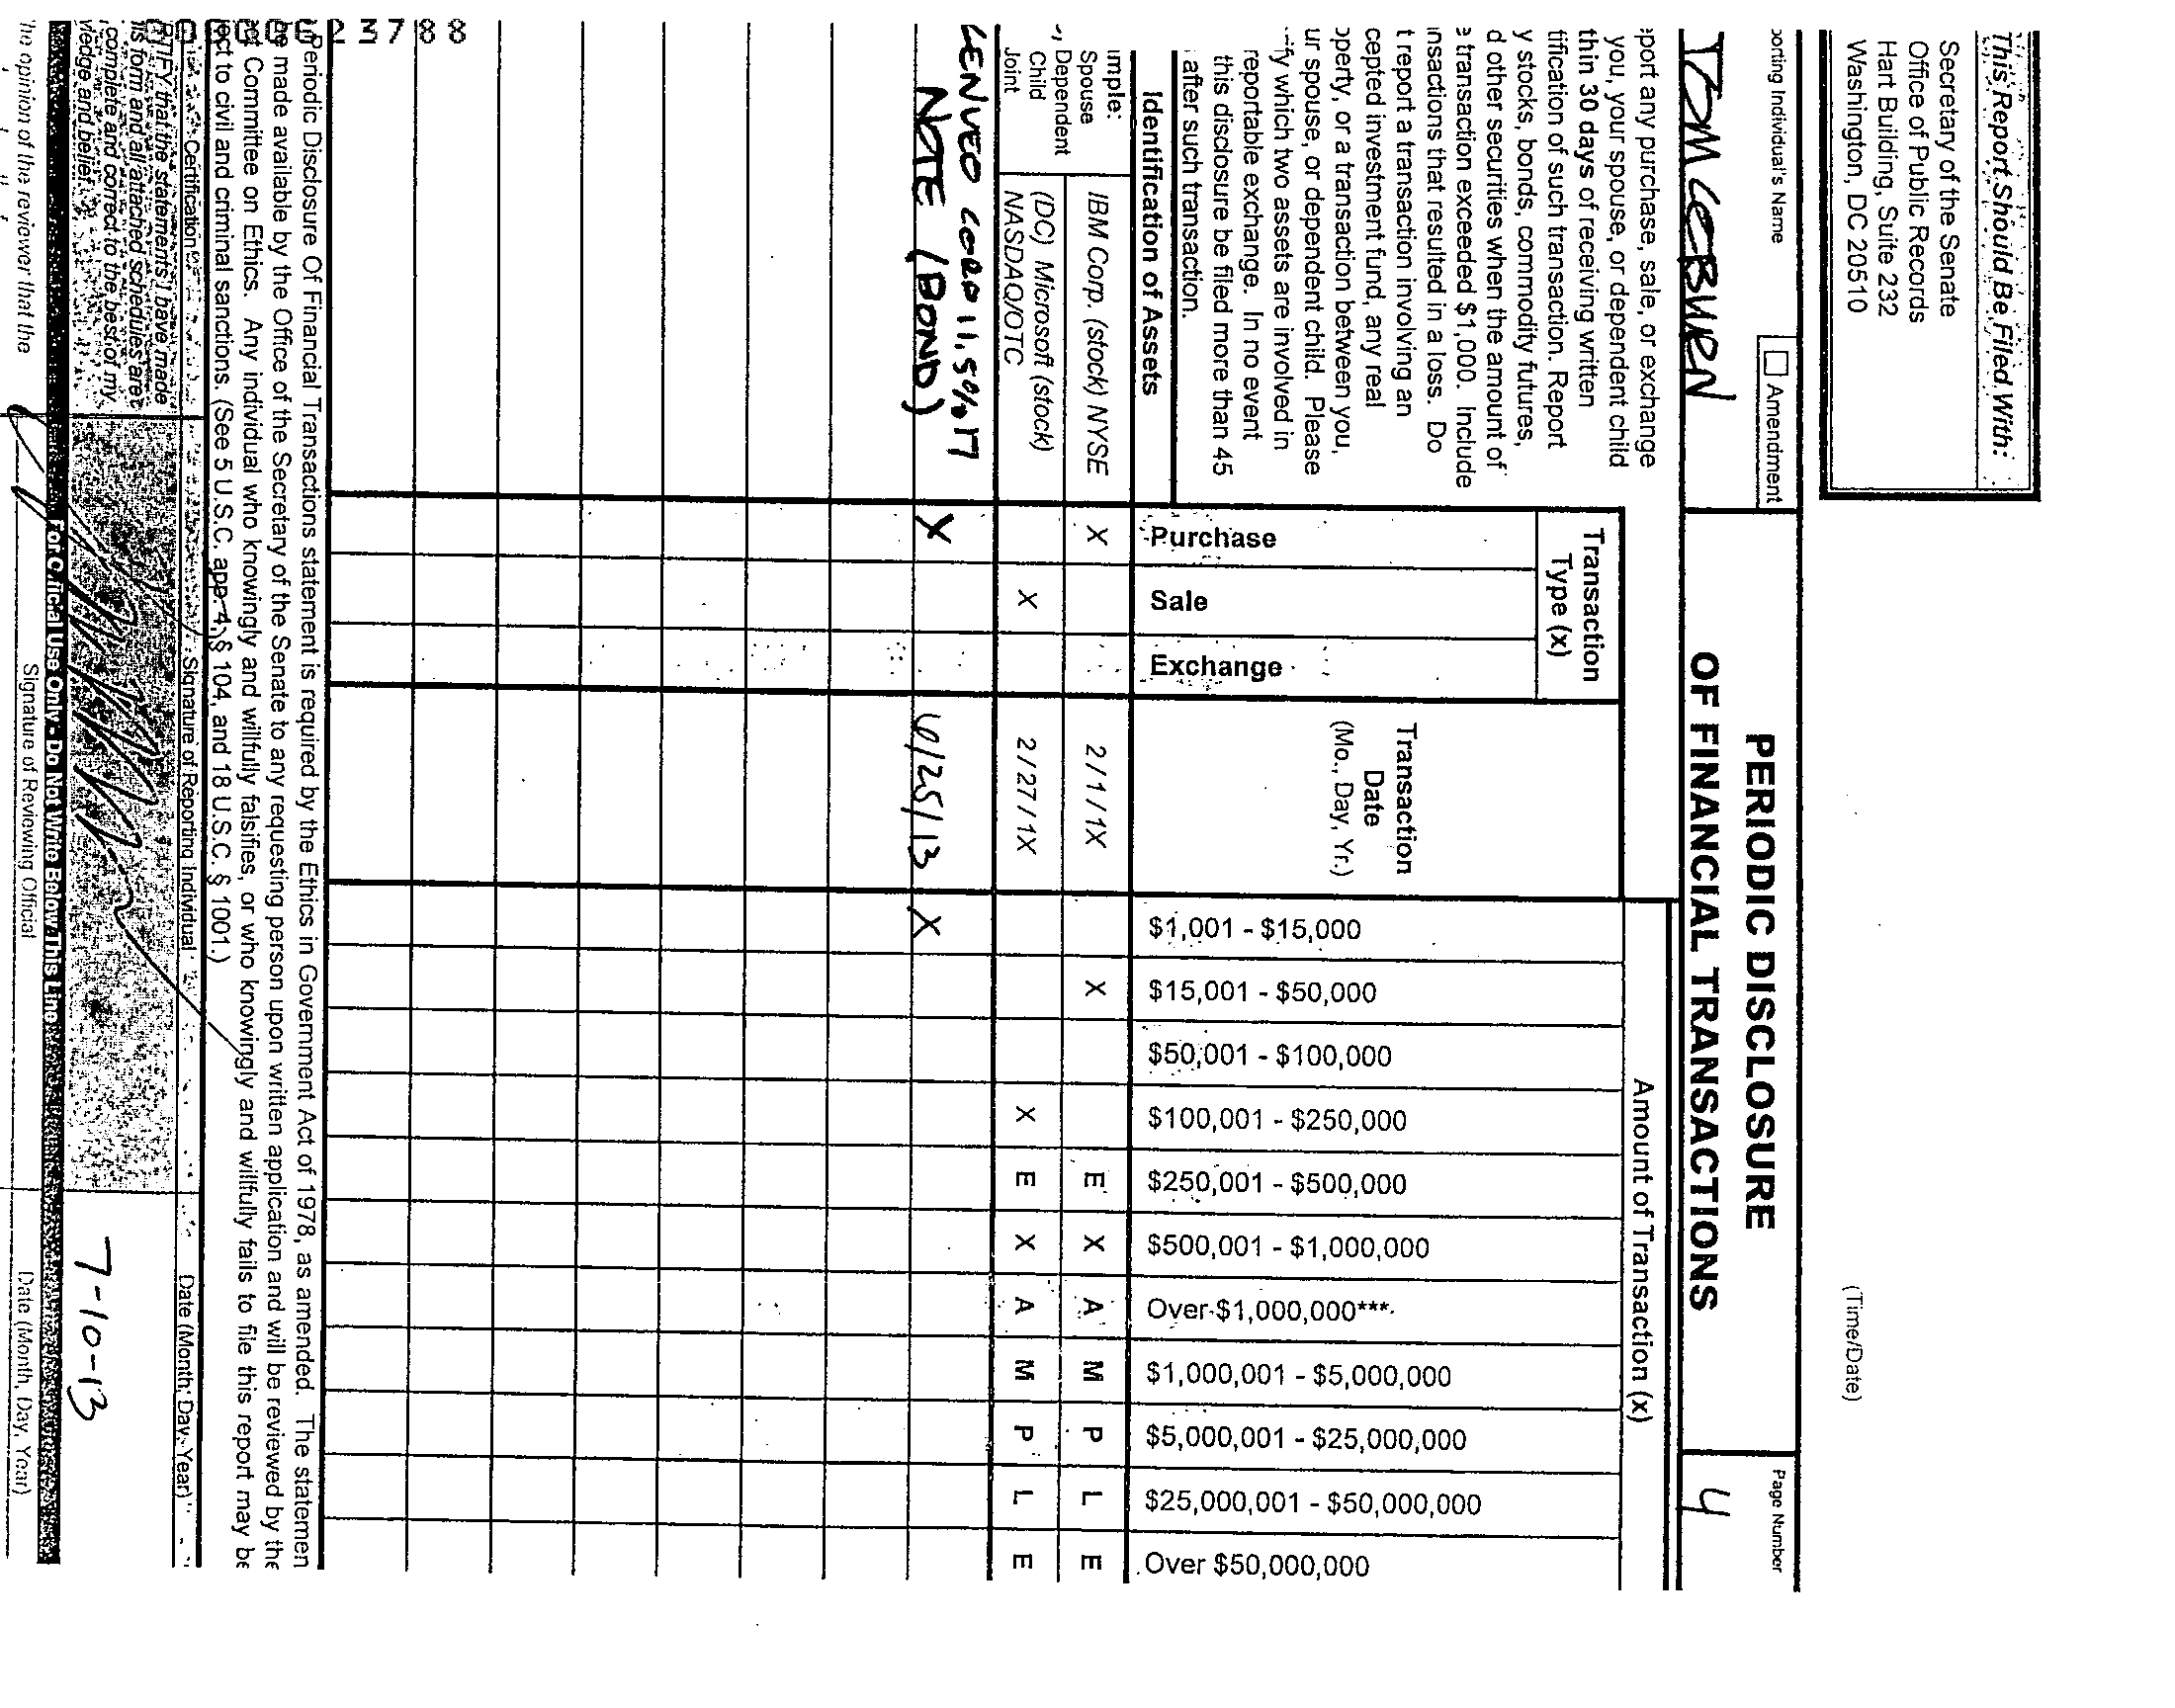 This Report Should Be Filed With:
Secretary of the Senate
Office of Public Records
Hart Building, Suite 232
Washington, DC 20510
(Time/Date)
orting Individual's Name
Amendment
PERIODIC DISCLOSURE
OF FINANCIAL TRANSACTIONS
Page Number
TOM COBURN
4
port any purchase, sale, or exchange
you, your spouse, or dependent child
thin 30 days of receiving written
tification of such transaction. Report
y stocks, bonds, commodity futures,
d other securities when the amount of
e transaction exceeded $1,000. Include
nsactions that resulted in a loss. Do
t report a transaction involving an
cepted investment fund, any real
operty, or a transaction between you,
ur spouse, or dependent child. Please
fy which two assets are involved in
reportable exchange. In no event
this disclosure be filed more than 45
after such transaction.
Transaction
Type (x)
Amount of Transaction (x)
Identification of Assets
Purchase
Sale
Exchange
Transaction
Date
(Mo., Day, Yr.)
$1,001 - $15,000
$15,001 - $50,000
$50,001 - $100,000
$100,001 - $250,000
$250,001 - $500,000
$500,001 - $1,000,000
Over $1,000,000***
$1,000,001 - $5,000,000
$5,000,001 - $25,000,000
$25,000,001 - $50,000,000
Over $50,000,000
mple:
Spouse
, Dependent
Child
Joint
IBM Corp. (stock) NYSE X 2/1/1X X E X A M P L E
(DC) Microsoft (stock)
NASDAQ/OTC X 2/27/1X X E X A M P L E
CENVEO CORP 11.5% 17
NOTE (BOND) X 6/25/13 X
Periodic Disclosure Of Financial Transactions statement is required by the Ethics in Government Act of 1978, as amended. The statemen
be made available by the Office of the Secretary of the Senate to any requesting person upon written application and will be reviewed by the
Committee on Ethics. Any individual who knowingly and willfully falsifies, or who knowingly and willfully fails to file this report may be
ect to civil and criminal sanctions. (See 5 U.S.C. app. 4, § 104, and 18 U.S.C. § 1001.)
23788
Certification
Signature of Reporting Individual
Date (Month, Day, Year)
TIFY that the statements I have made
is form and all attached schedules are
complete and correct to the best of my
ledge and belief.
7-10-13
For Official Use Only - Do Not Write Below This Line
he opinion of the reviewer that the
Signature of Reviewing Official
Date (Month, Day, Year)